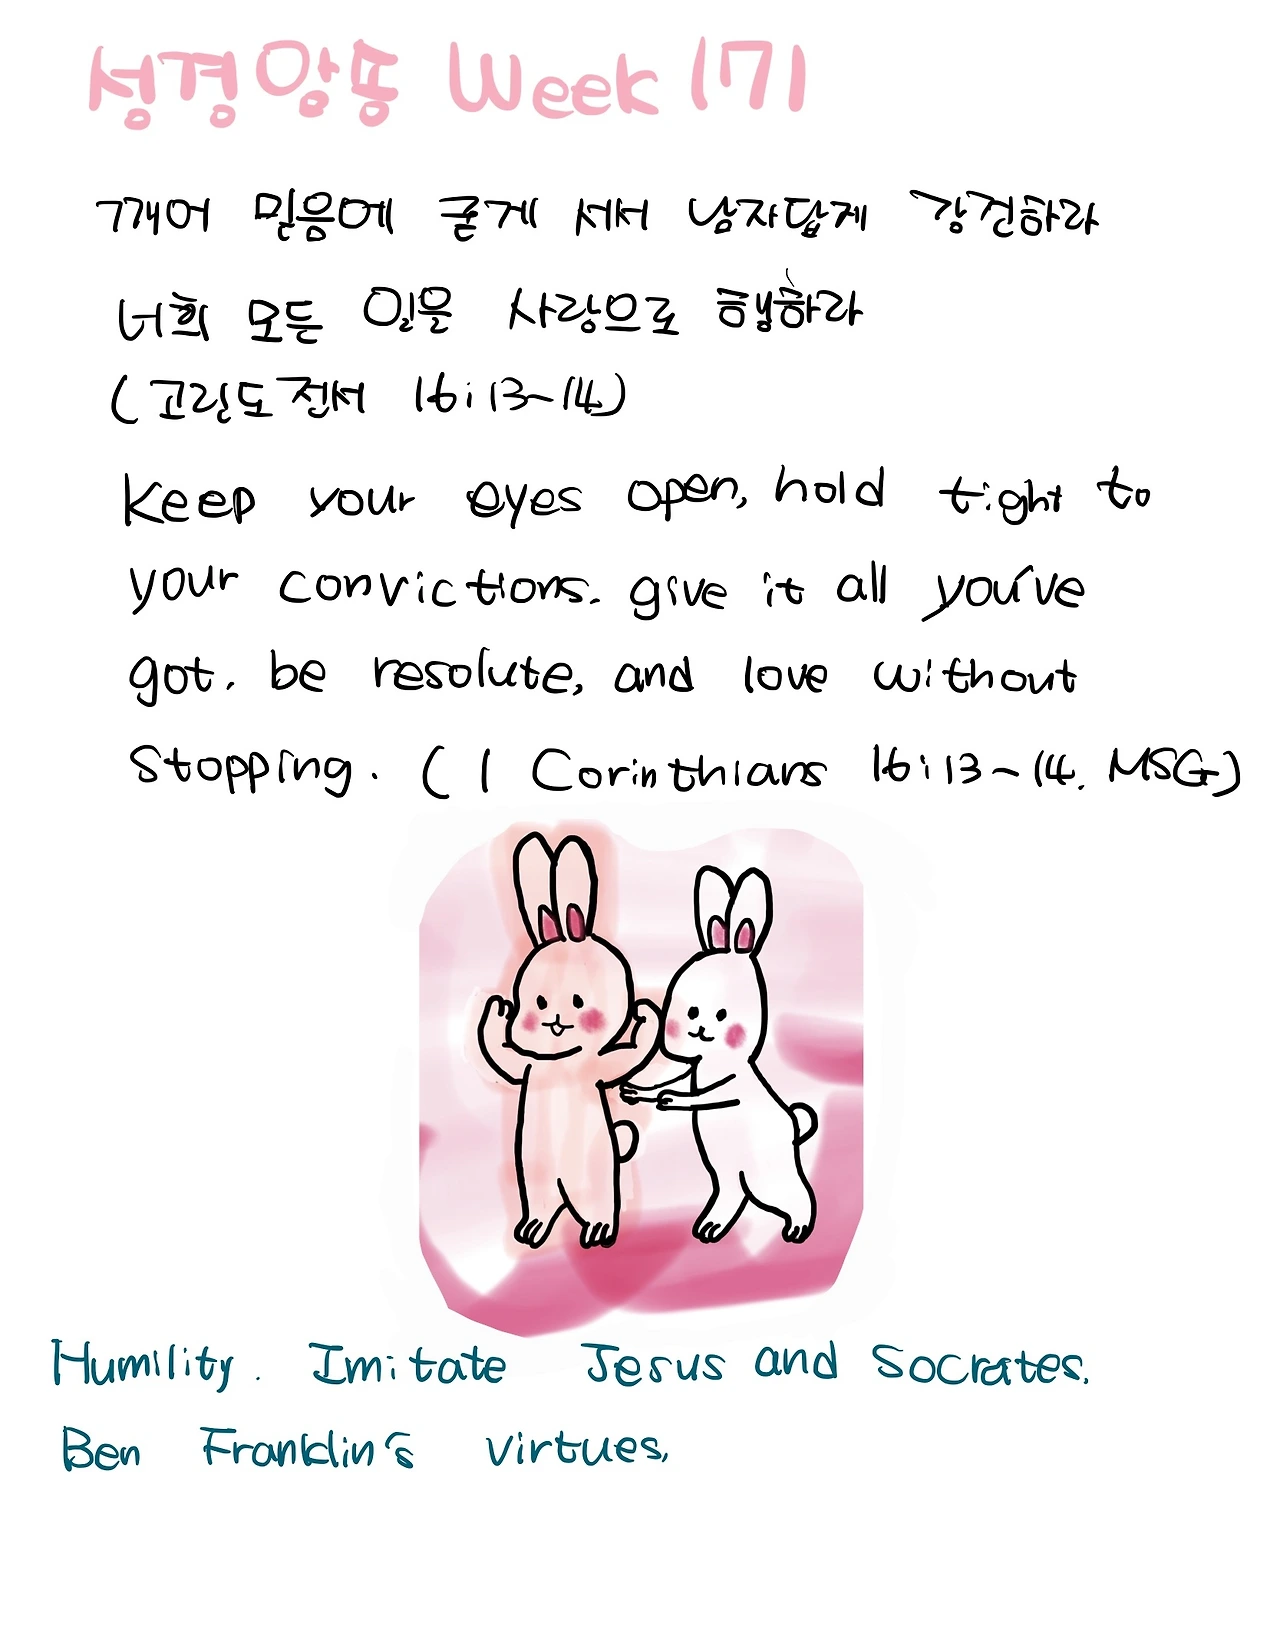 성경암똥 Week 171
깨어 믿음에 굳게 서서 남자답게 강건하라
너희 모든 일을 사랑으로 행하라
(고린도전서 16:13~14)
Keep your eyes open, hold tight to
your convictions. give it all you've
got. be resolute, and love without
Stopping. (1 Corinthians 16:13~14. MSG)
Humility. Imitate Jesus and Socrates.
Ben Franklin's virtues.